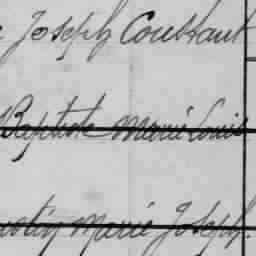 Joseph Constant
Baptiste Marie Louis
Marie Joseph